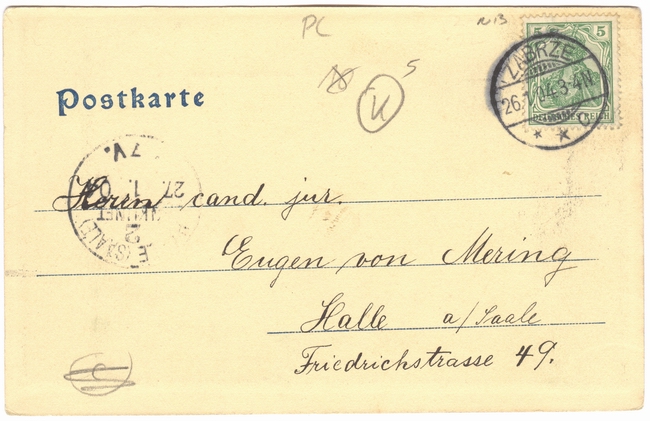 PC
N 13
5
K
Postkarte
5 5
DEUTSCHES REICH
ZABRZE
26.1.04.3-4N.
* * c
7V.
27. 1. 0
(SAALE)
Herrn cand. jur.
Eugen von Mering
Halle a/Saale
Friedrichstrasse 49.
C